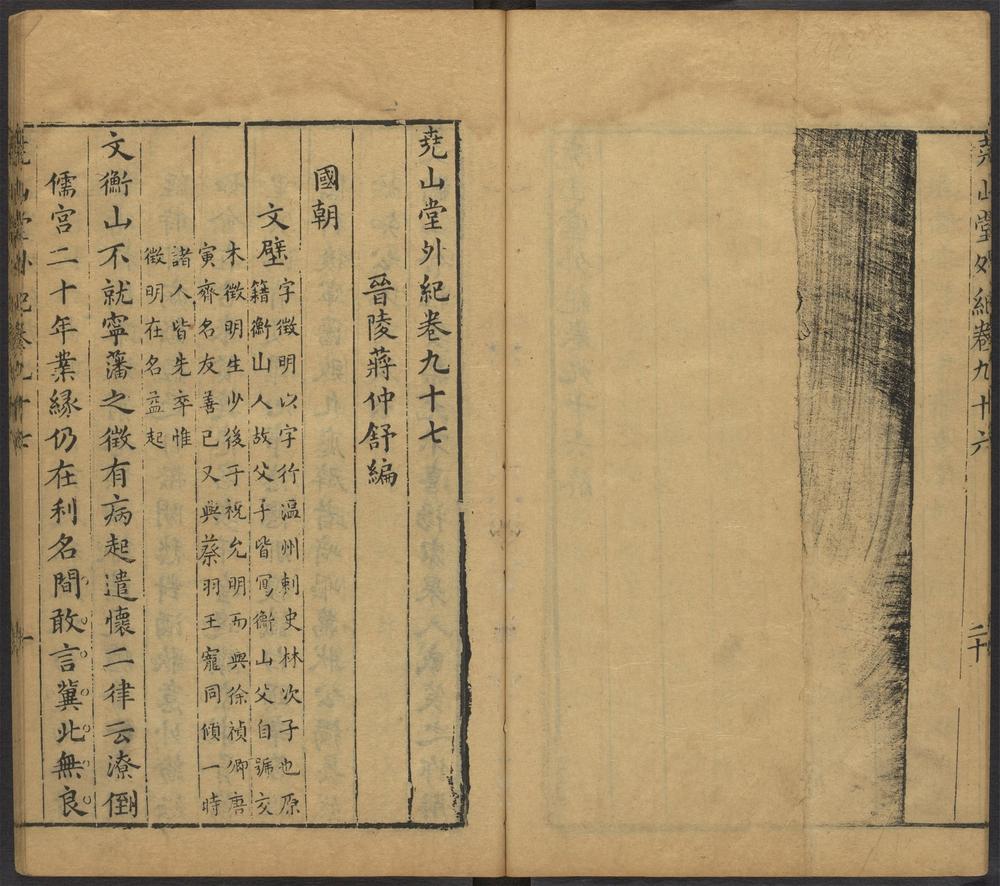 尭山堂外紀卷九十六
二十
尭山堂外紀卷九十七
晉陵蔣仲舒編
國朝
文壁
字徵明以字行温州刺史林次子也原
籍衡山人故父子皆冩衡山父自號交
木徵明生少後于祝允明而與徐禎卿唐
寅齊名友善已又與蔡羽王寵同傾一時
諸人皆先卒惟
徵明在名益起
文衡山不就寧藩之徵有病起遣懷二律云潦倒
儒宫二十年業縁仍在利名間敢言冀北無良
尭山堂外紀卷九十七
一